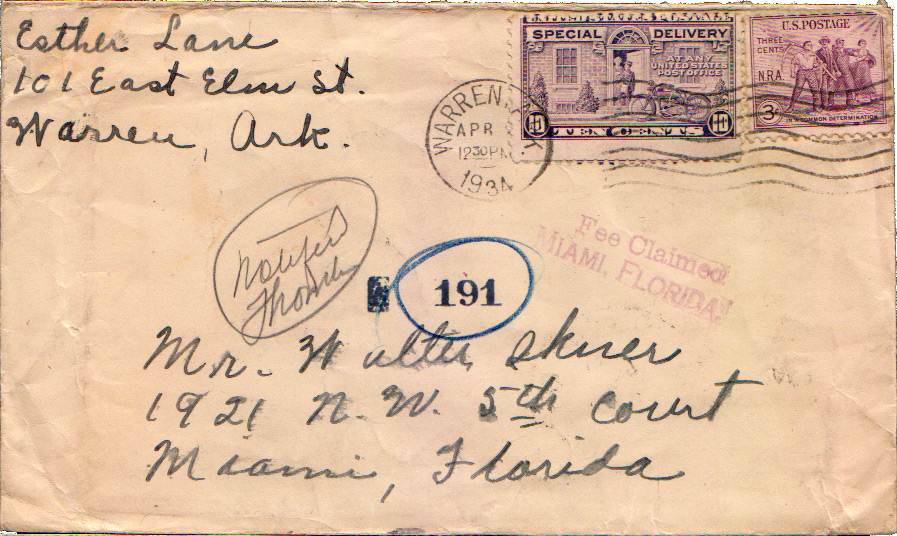 Esther Lane
101 East Elm St.
Warren, Ark.
SPECIAL DELIVERY
AT ANY
UNITED STATES
POST OFFICE
10 10
TEN CENTS
U.S. POSTAGE
THREE
CENTS
N.R.A.
3¢
IN A COMMON DETERMINATION
WARREN, ARK
APR
12 30 PM
1934
Notified
Fee Claimed
MIAMI, FLORIDA.
191
Mr. Walter Skner
1921 N.W. 5th Court
Miami, Florida